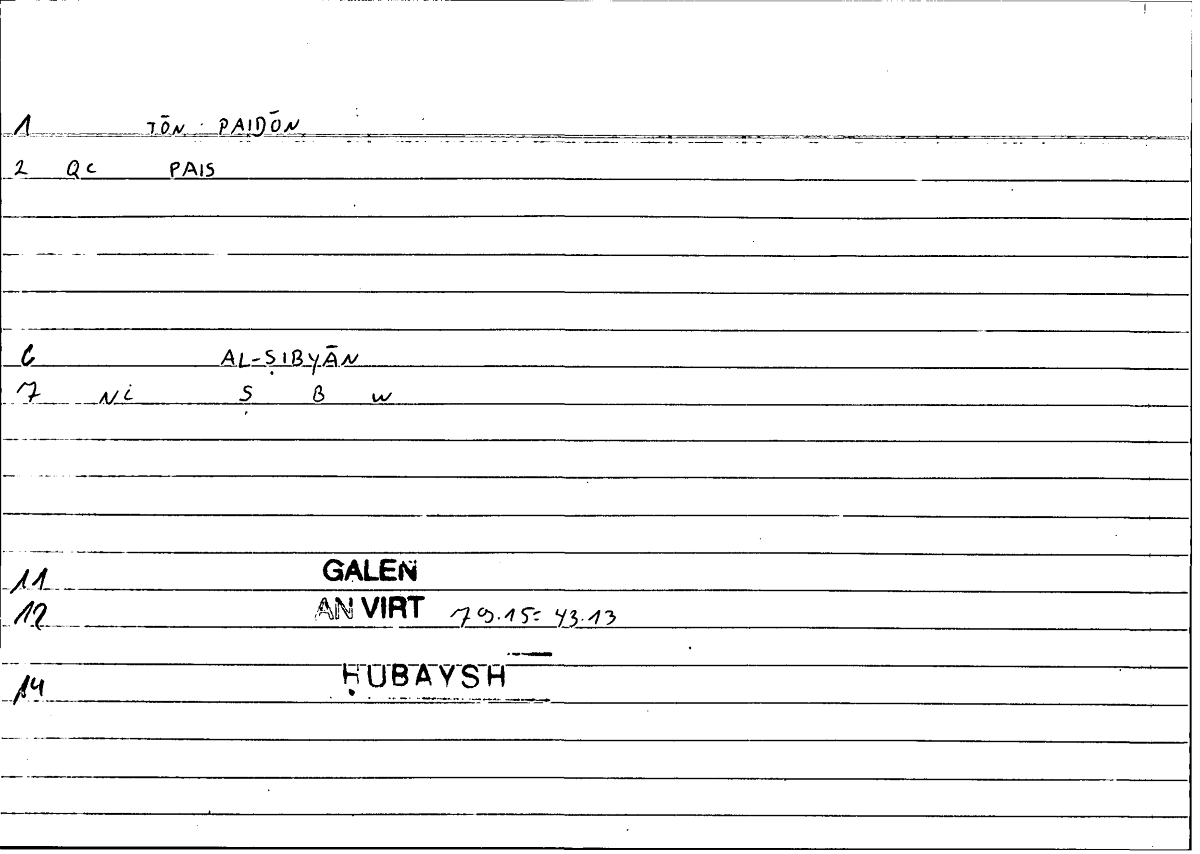 1 TŌN PAIDŌN
2 QC PAIS
6 AL-ṢIBYĀN
7 NI Ṣ B W
11 GALEN
12 AN VIRT 79.15= 43.13
14 ḤUBAYSH